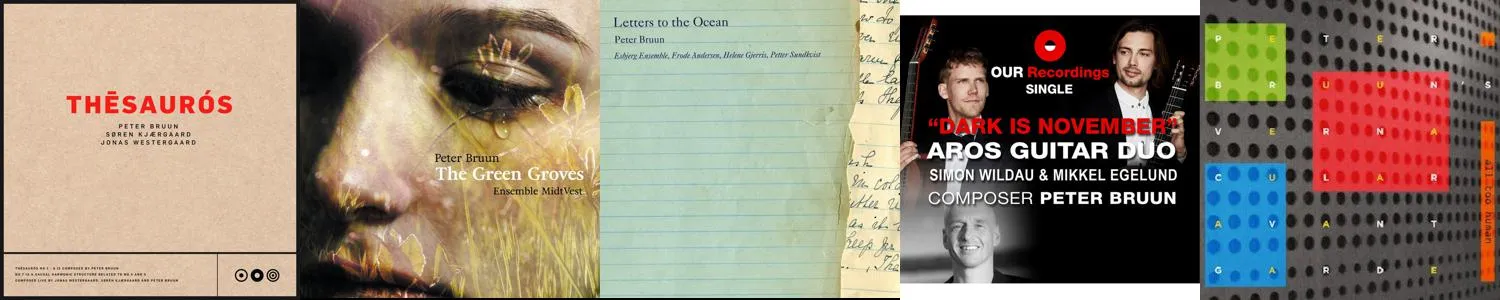 THĒSAURÓS
PETER BRUUN
SØREN KJÆRGAARD
JONAS WESTERGAARD
THĒSAURÓS NO 1 - 6 IS COMPOSED BY PETER BRUUN
COMPOSED LIVE BY JONAS WESTERGAARD, SØREN KJÆRGAARD AND PETER BRUUN
Peter Bruun
The Green Groves
Ensemble MidtVest
Letters to the Ocean
Peter Bruun
Esbjerg Ensemble, Frode Andersen, Helene Gjerris, Petter Sundkvist
OUR Recordings
SINGLE
"DARK IS NOVEMBER"
AROS GUITAR DUO
SIMON WILDAU & MIKKEL EGELUND
COMPOSER PETER BRUUN
PETER
BRUUN'S
VERNA
CULAR
AVANT
GARDE
all too human